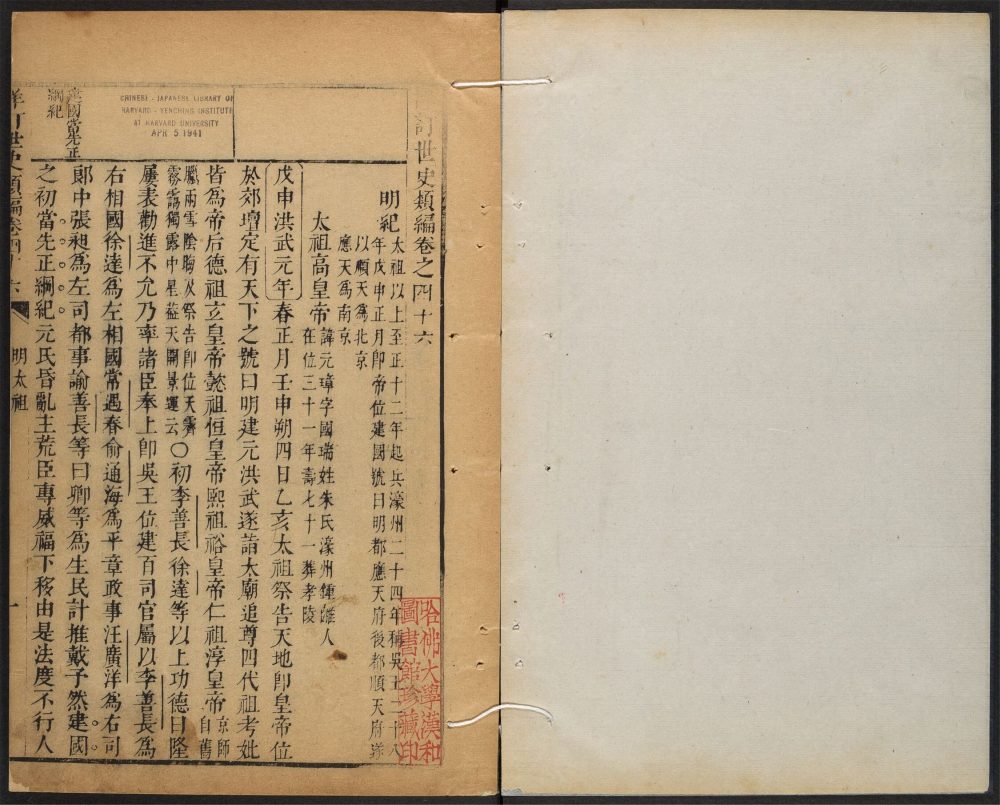 訂世史類編卷之四十六
明紀
太祖以上至正十二年起兵濠州二十四年稱吳王二十八
年戊申正月卽帝位建國號曰明都應天府後都順天府遂
以順天爲北京
應天爲南京
太祖高皇帝
諱元璋字國瑞姓朱氏濠州鍾離人
在位三十一年壽七十一葬孝陵
戊申洪武元年春正月壬申朔四日乙亥太祖祭告天地卽皇帝位
於郊壇定有天下之號曰明建元洪武遂詣太廟追尊四代祖考妣
皆爲帝后德祖玄皇帝懿祖恒皇帝熙祖裕皇帝仁祖淳皇帝
京師
自舊
臘雨雪陰晦及祭告卽位天霽
霧靄獨露中星葢天開景運云
〇初李善長徐達等以上功德日隆
屢表勸進不允乃率諸臣奉上卽吳王位建百司官屬以李善長爲
右相國徐達爲左相國常遇春俞通海爲平章政事汪廣洋爲右司
郞中張昶爲左司都事諭善長等曰卿等爲生民計推戴予然建國
之初當先正綱紀元氏昏亂主荒臣專威福下移由是法度不行人
建國當先正
綱紀
詳訂世史類編卷四十六
明太祖
一
CHINESE - JAPANESE LIBRARY OF
HARVARD - YENCHING INSTITUTE
AT HARVARD UNIVERSITY
APR 5 1941
哈佛大學漢和
圖書館珍藏印